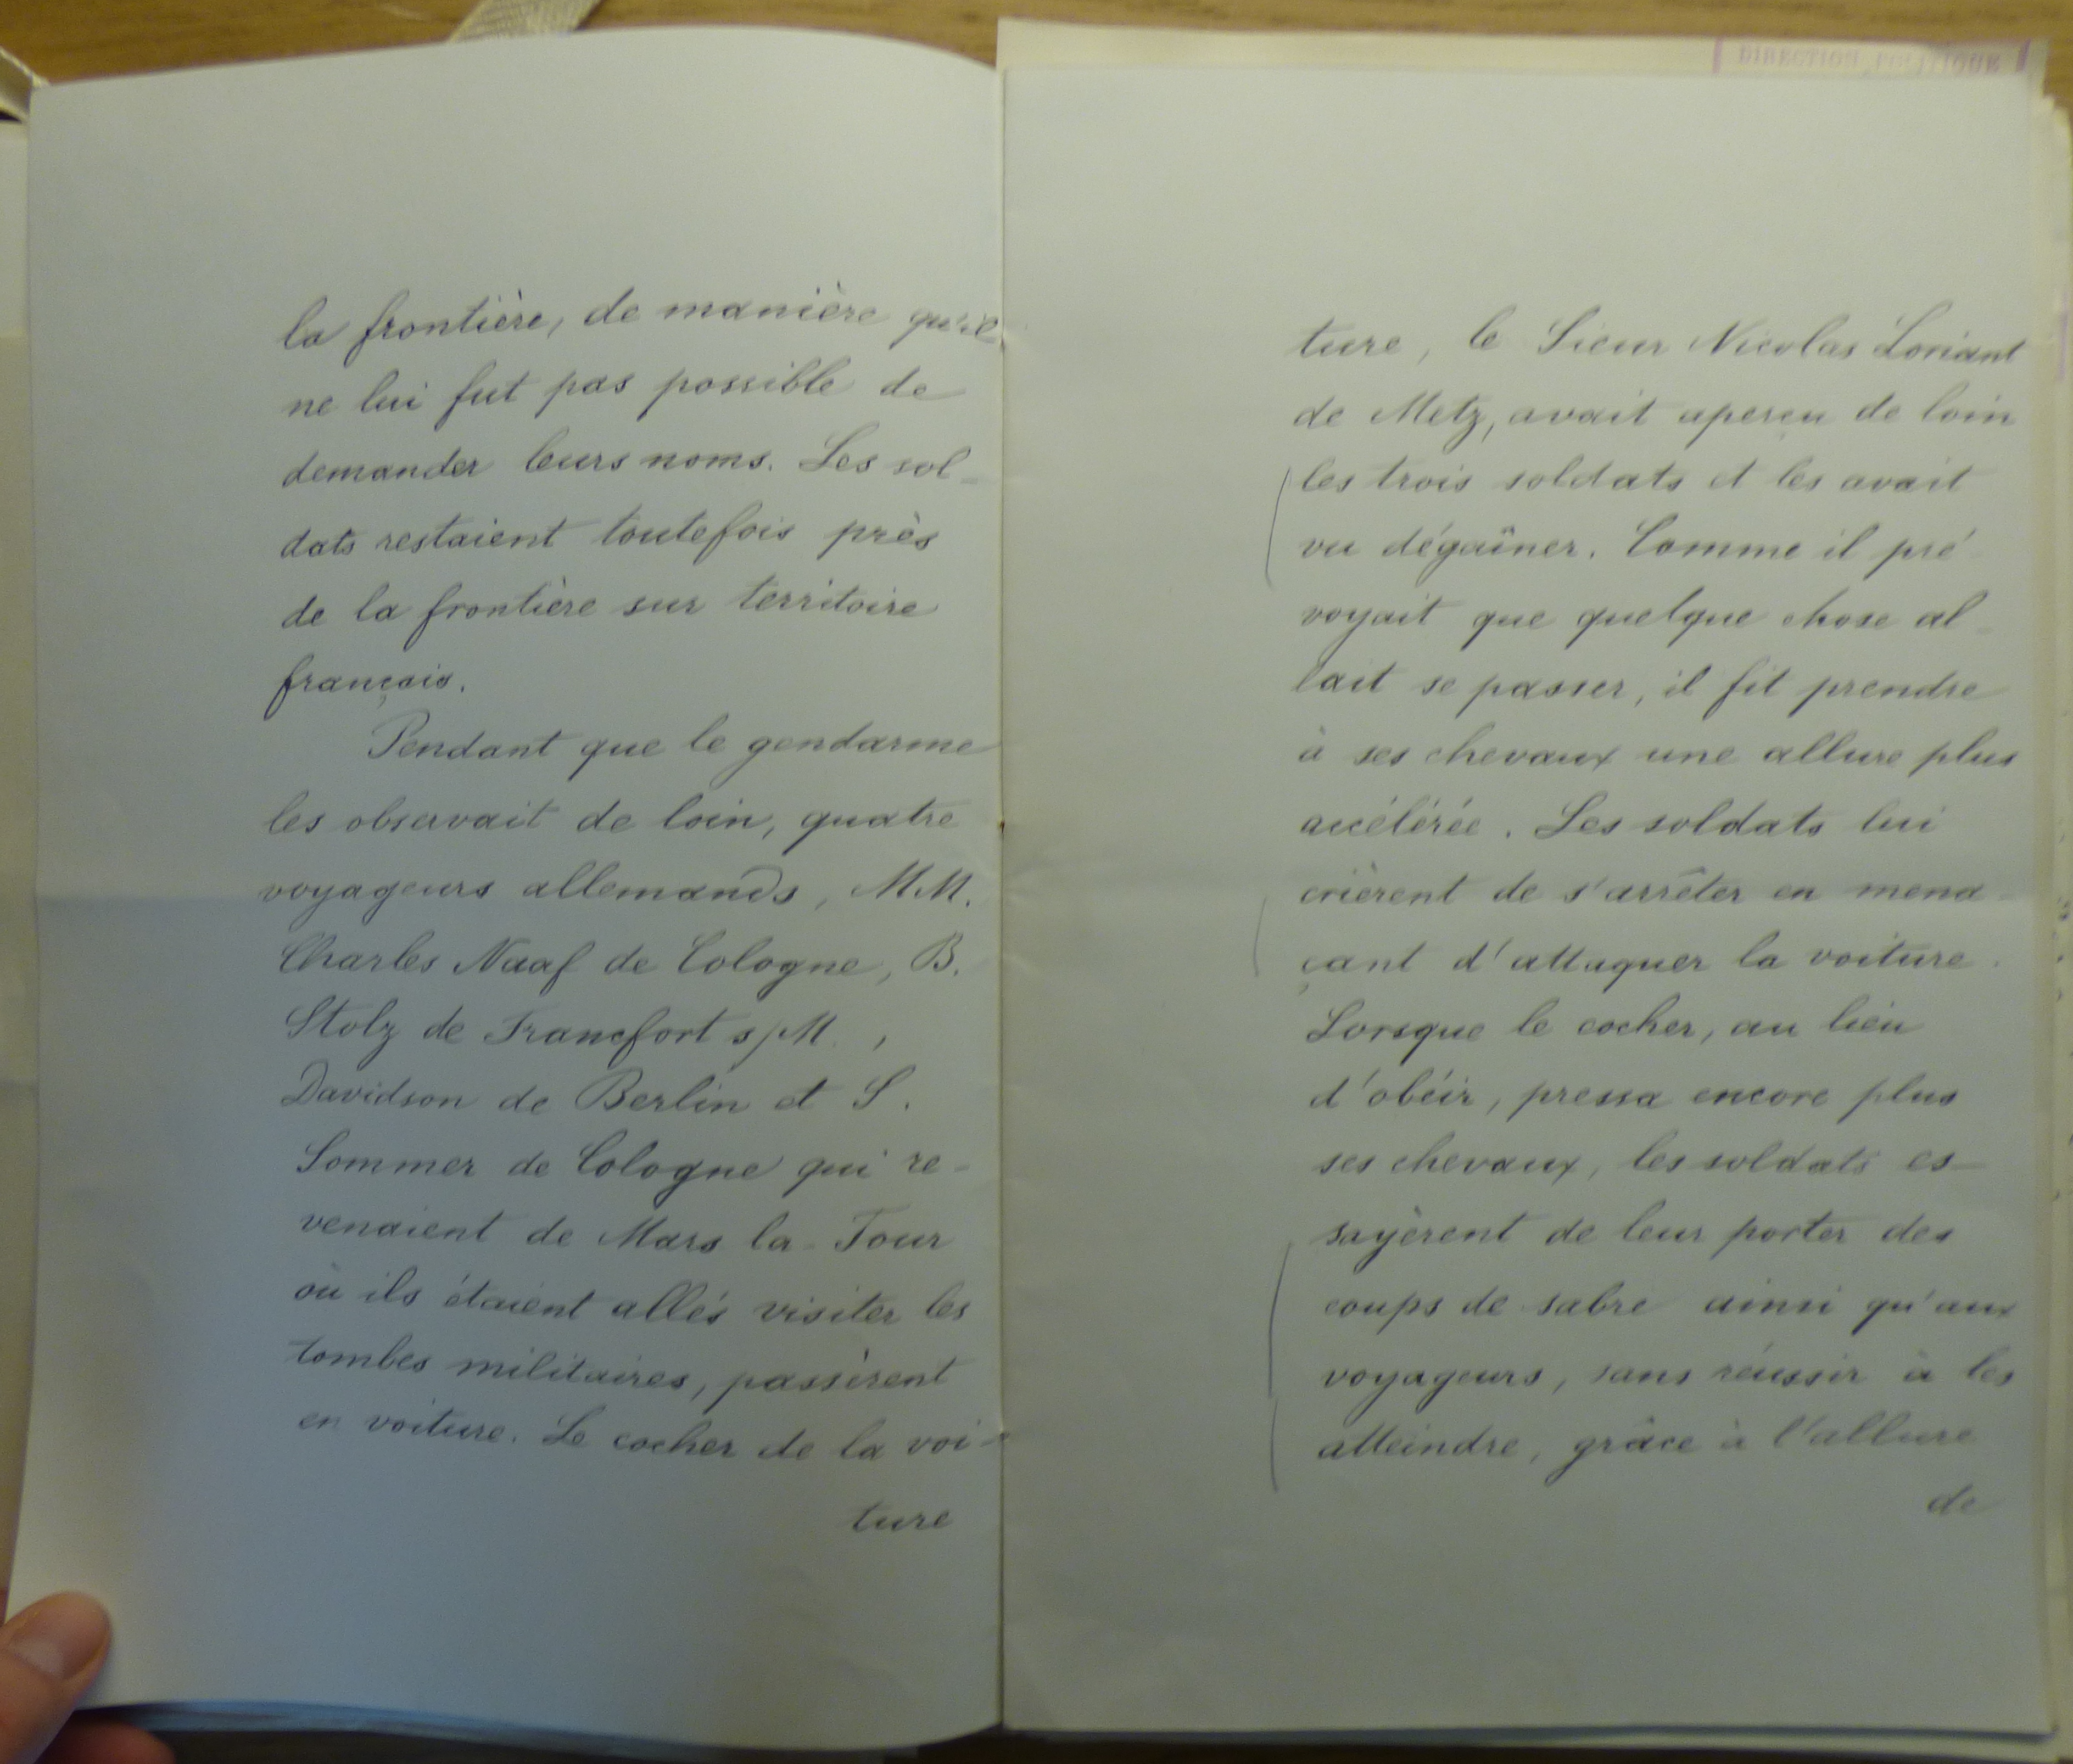 la frontière, de manière qu'il
ne lui fut pas possible de
demander leurs noms. Les sol-
dats restaient toutefois près
de la frontière sur territoire
français.
Pendant que le gendarme
les observait de loin, quatre
voyageurs allemands, MM.
Charles Naaf de Cologne, B.
Stolz de Francfort s/M.,
Davidson de Berlin et S.
Sommer de Cologne qui re-
venaient de Mars la-Tour
où ils étaient allés visiter les
tombes militaires, passèrent
en voiture. Le cocher de la voi-
ture
DIRECTION POLITIQUE
ture, le Sieur Nicolas Loriant
de Metz, avait aperçu de loin
les trois soldats et les avait
vu dégaîner. Comme il pré-
voyait que quelque chose al-
lait se passer, il fit prendre
à ses chevaux une allure plus
accélérée. Les soldats lui
crièrent de s'arrêter en mena-
çant d'attaquer la voiture.
Lorsque le cocher, au lieu
d'obéir, pressa encore plus
ses chevaux, les soldats es-
sayèrent de leur porter des
coups de sabre ainsi qu'aux
voyageurs, sans réussir à les
atteindre, grâce à l'allure
de